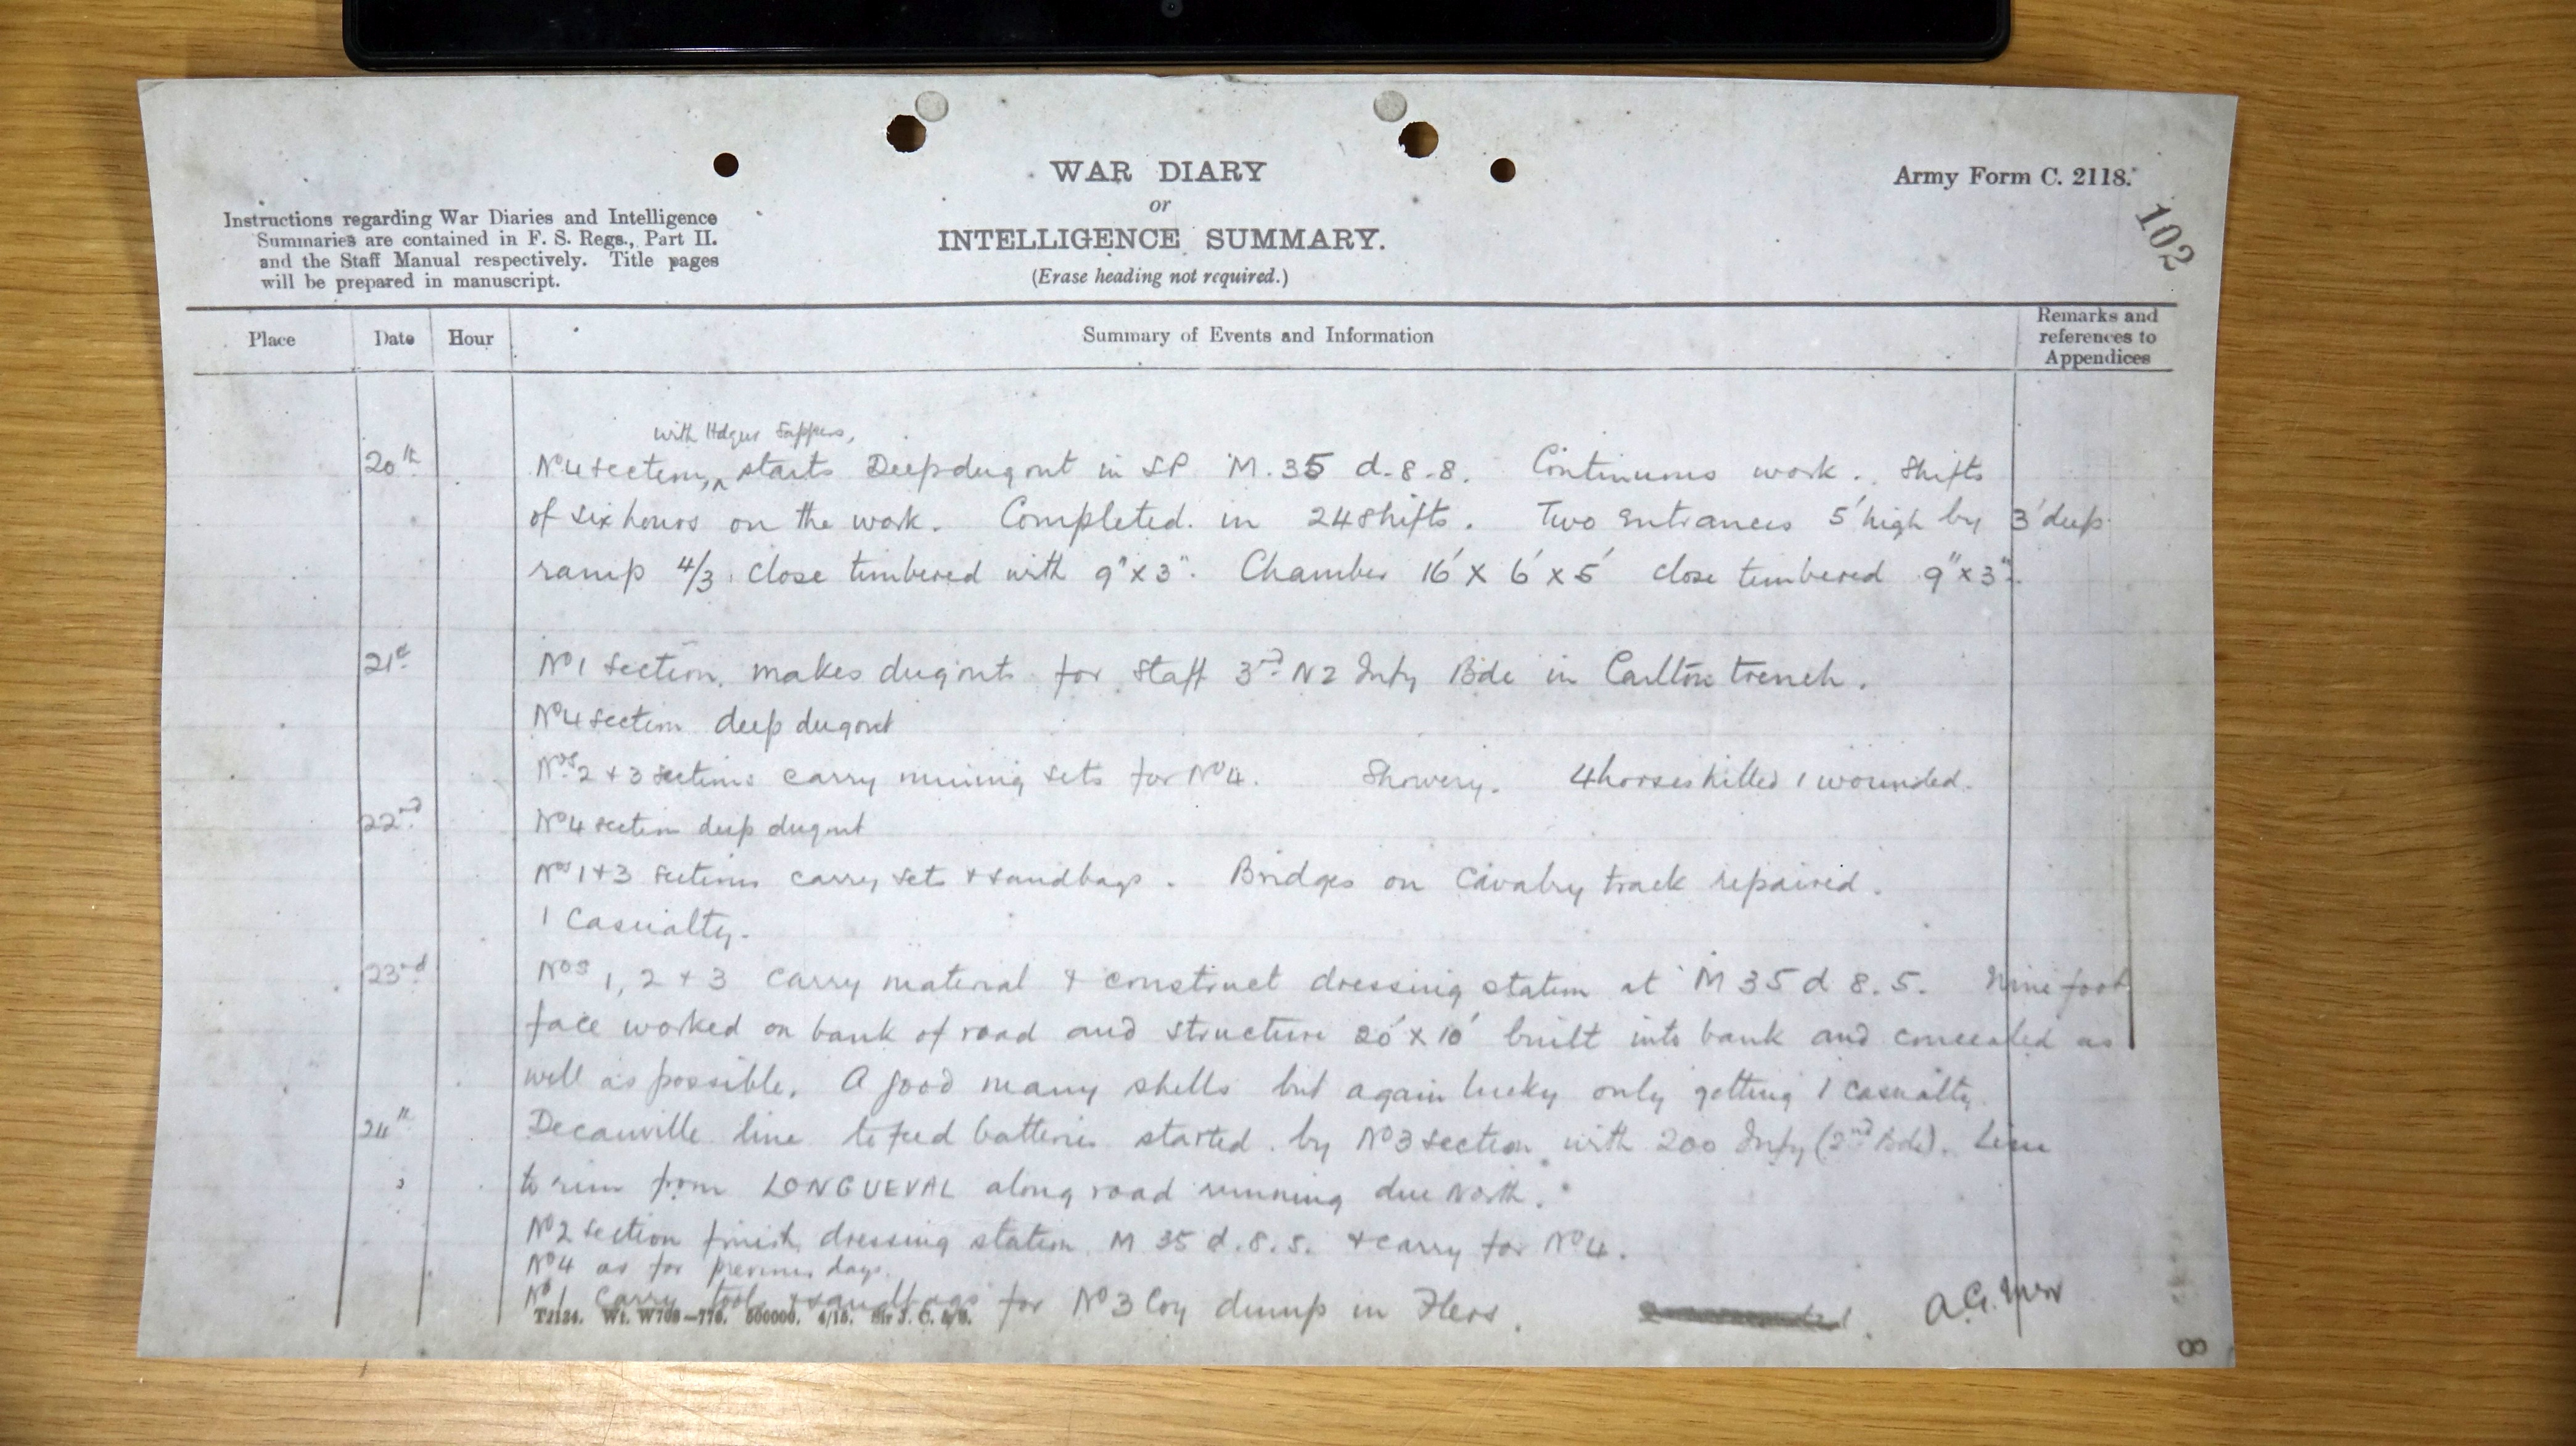 WAR DIARY
or
INTELLIGENCE SUMMARY.
(Erase heading not required.)
Army Form C. 2118.
102
Instructions regarding War Diaries and Intelligence
Summaries are contained in F. S. Regs., Part II.
and the Staff Manual respectively. Title pages
will be prepared in manuscript.
Place Date Hour Summary of Events and Information Remarks and references to Appendices
with Hdqrs Sappers,
20th No 4 section, starts Deep dugout in SP M. 35 d. 8. 8. Continuous work. Shifts
of six hours on the work. Completed in 24 shifts. Two Entrances 5' high by 3' deep
ramp 4/3 close timbered with 9" x 3". Chamber 16' x 6' x 5' close timbered 9" x 3".
21st No 1 Section. makes dugouts for Staff 3rd NZ Infy Bde in Carlton trench.
No 4 section deep dugout
Nos 2 + 3 sections carry mining sets for No 4. Showery. 4 horses killed 1 wounded.
22nd No 4 section deep dugout
Nos 1 + 3 sections carry sets + sandbags. Bridges on Cavalry track repaired.
1 Casualty.
23rd Nos 1, 2 + 3 carry material + construct dressing station at M 35 d 8. 5. Nine foot
face worked on bank of road and structure 20' x 10' built into bank and concealed as
well as possible. A good many shells but again lucky only getting 1 casualty.
24th Decauville line to feed batteries started by No 3 section with 200 Infy (2nd Bde). Line
to run from LONGUEVAL along road running due North.
No 2 section finish dressing station M 35 d. 8. 5. + carry for No 4.
No 4 as for previous days.
No 1 carry tools + sandbags for No 3 Coy dump in Flers.
A.G.
8